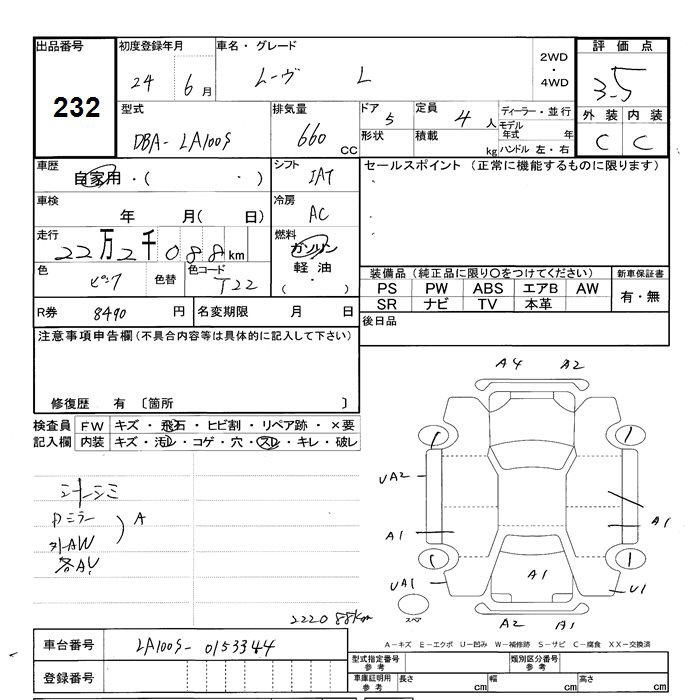 出品番号 初度登録年月 車名・グレード 2WD・4WD 評価点
232 24 6月 ムーヴ L 3.5
型式 排気量 ドア 定員 ディーラー・並行 外装 内装
DBA-LA100S 660CC 5 4人 モデル年式 年 C C
形状 積載 kg ハンドル 左・右
車歴 シフト セールスポイント (正常に機能するものに限ります)
自家用・( ・ ) IAT
車検 冷房
年 月( 日) AC
走行 燃料
22万2千088km ガソリン
色 色替 色コード 軽油 装備品 (純正品に限り○をつけてください) 新車保証書
ピンク T22 ( ・ ) PS PW ABS エアB AW 有・無
SR ナビ TV 本革
R券 8490円 名変期限 月 日 後日品
注意事項申告欄(不具合内容等は具体的に記入して下さい)
修復歴 有 〔箇所 〕
検査員 FW キズ・飛石・ヒビ割・リペア跡・×要
記入欄 内装 キズ・汚レ・コゲ・穴・スレ・キレ・破レ
A4 A2
シートシミ UA2
Dミラー A
外AW A1 A1
各AU
UA1 A1 U1
スペア
222088km A2 A1
A-キズ E-エクボ U-凹み W-補修跡 S-サビ C-腐食 XX-交換済
車台番号 LA100S-0153344
型式指定番号 参考 類別区分番号 参考
登録番号 車庫証明用 参考 長さ cm 幅 cm 高さ cm